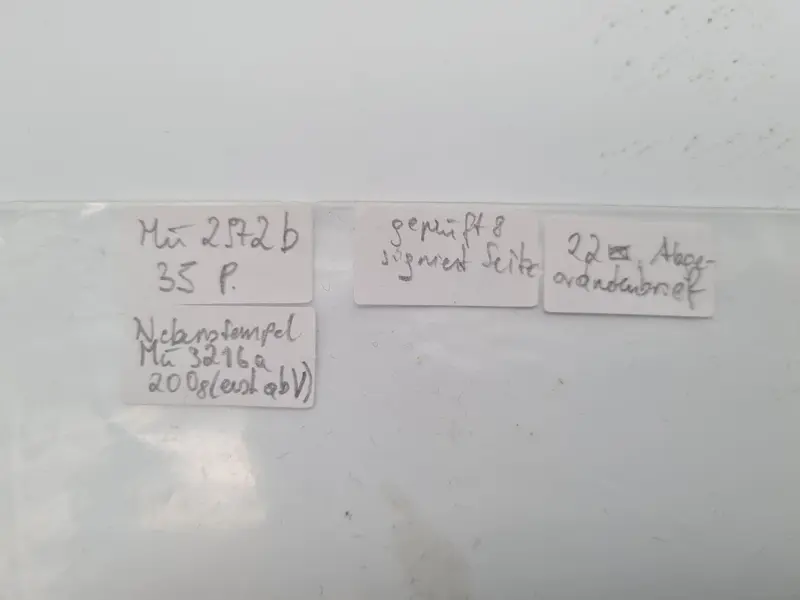 Mü 2572 b
35 P.
Nebenstempel
Mü 3216a
200g (erst ab V)
geprüft &
signiert Seitz
22 ✉. Abge-
ordnetenbrief